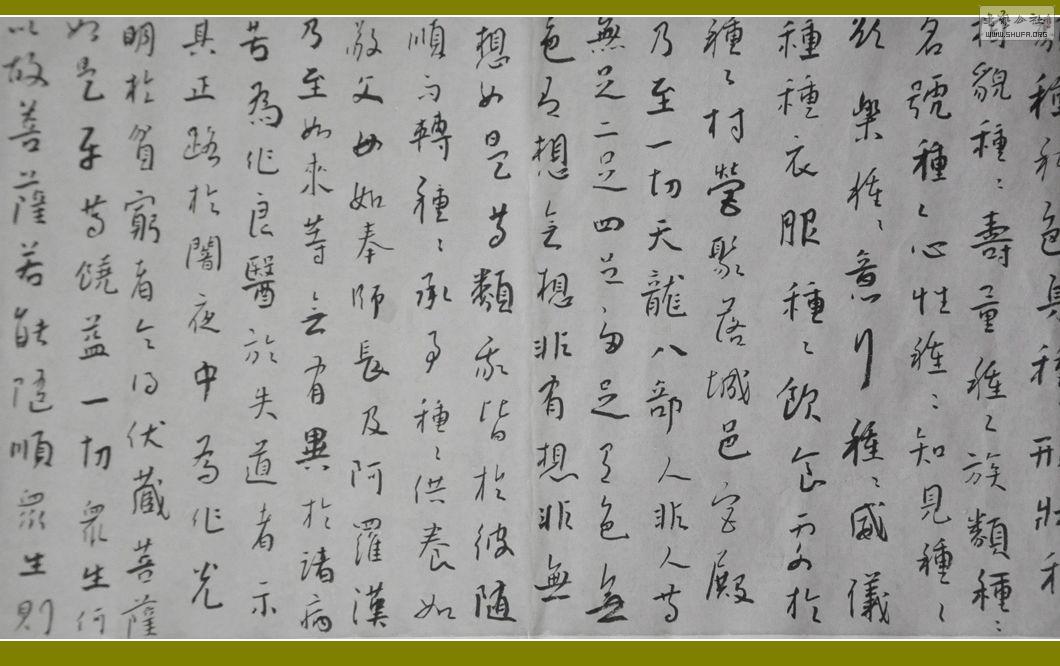 種種色身種種形狀種
相貌種〻壽量種〻族類種〻
名號種〻心性種〻知見種〻
欲樂種〻意行種〻威儀
種種衣服種〻飲食處於
種〻村營聚落城邑宮殿
乃至一切天龍八部人非人等
無足二足四足多足有色無
色有想無想非有想非無
想如是等類我皆於彼隨
順而轉種〻承事種〻供養如
敬父母如奉師長及阿羅漢
乃至如來等無有異於諸病
苦為作良醫於失道者示
其正路於闇夜中為作光
明於貧窮者令得伏藏菩薩
如是平等饒益一切眾生何
以故菩薩若能隨順眾生則
書法公社
WWW.SHUFA.ORG